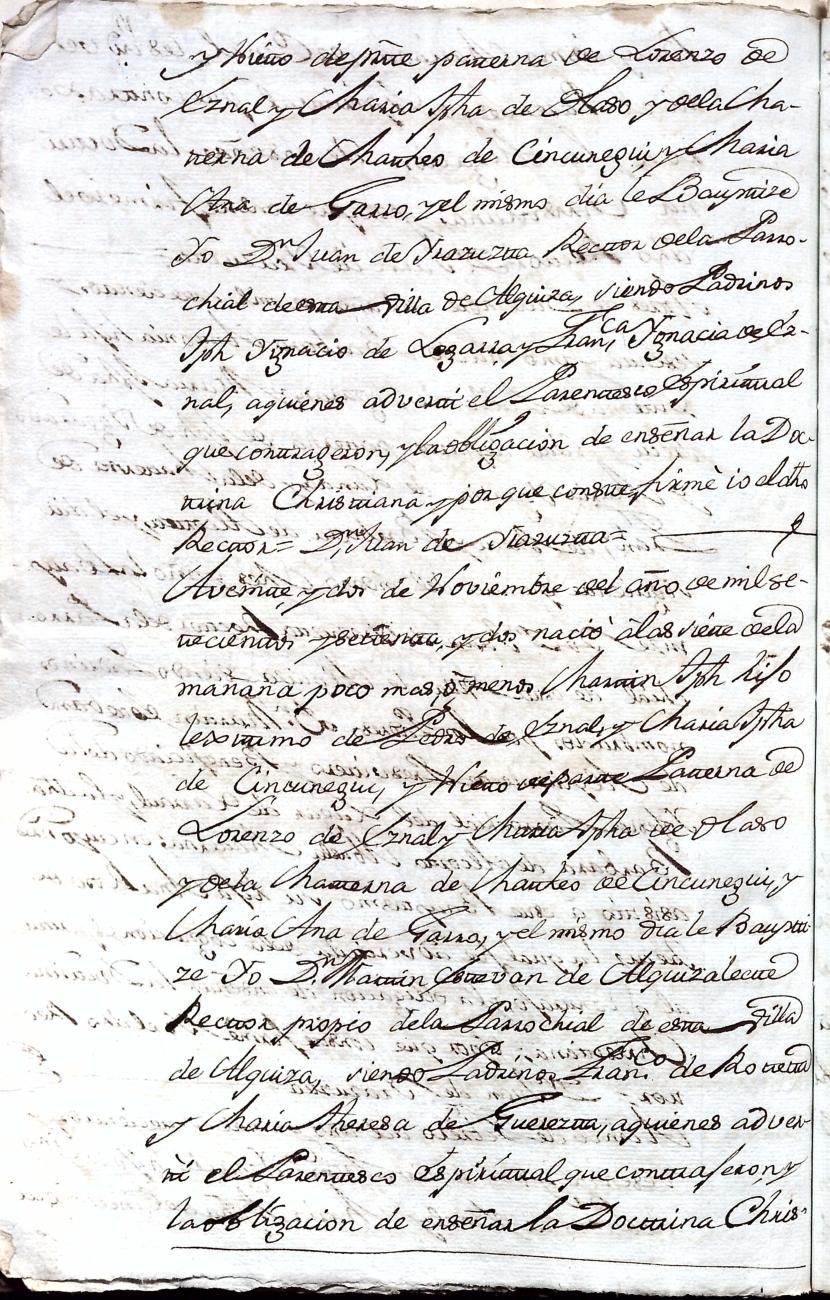 y Nieto de pte paterna de Lorenzo de
Eznal y Maria Jpha de Olaso y dela Ma-
terna de Matheo de Cincunegui, y Maria
Ana de Garro, y el mismo dia le Bauptize
Yo Dn Juan de Yrazuzta Rector dela Parro-
chial de esta Villa de Alquiza, siendo Padrinos
Jph Ygnacio de Legarra y Franca Ygnacia de Ez-
nal, aquienes adverti el Parentesco Espiritual
que contrageron, y la obligacion de enseñar la Doc-
trina Christiana y porque conste, firmè io el dho
Rector= Dn Juan de Yrazuzta=
Aveinte, y dos de Noviembre del año de mil se-
tecientos y setenta, y dos naciò àlas siete dela
mañana poco mas, ò menos Martin Jph hijo
lexitimo de Pedro de Eznal, y Maria Jpha
de Cincunegui, y Nieto de parte Paterna de
Lorenzo de Eznal y Maria Jpha de Olaso
y dela Materna de Matheo de Cincunegui, y
Maria Ana de Garro, y el mismo dia le Baupti-
ze Yo Dn Martin Estevan de Alquizalete
Rector propio dela Parrochial de esta Villa
de Alquiza, siendo Padrinos Franco de Roteta
y Maria Theresa de Guerezta, aquienes adver-
ti el Parentesco Espiritual que contrajeron, y
la obligacion de enseñar la Doctrina Chris-